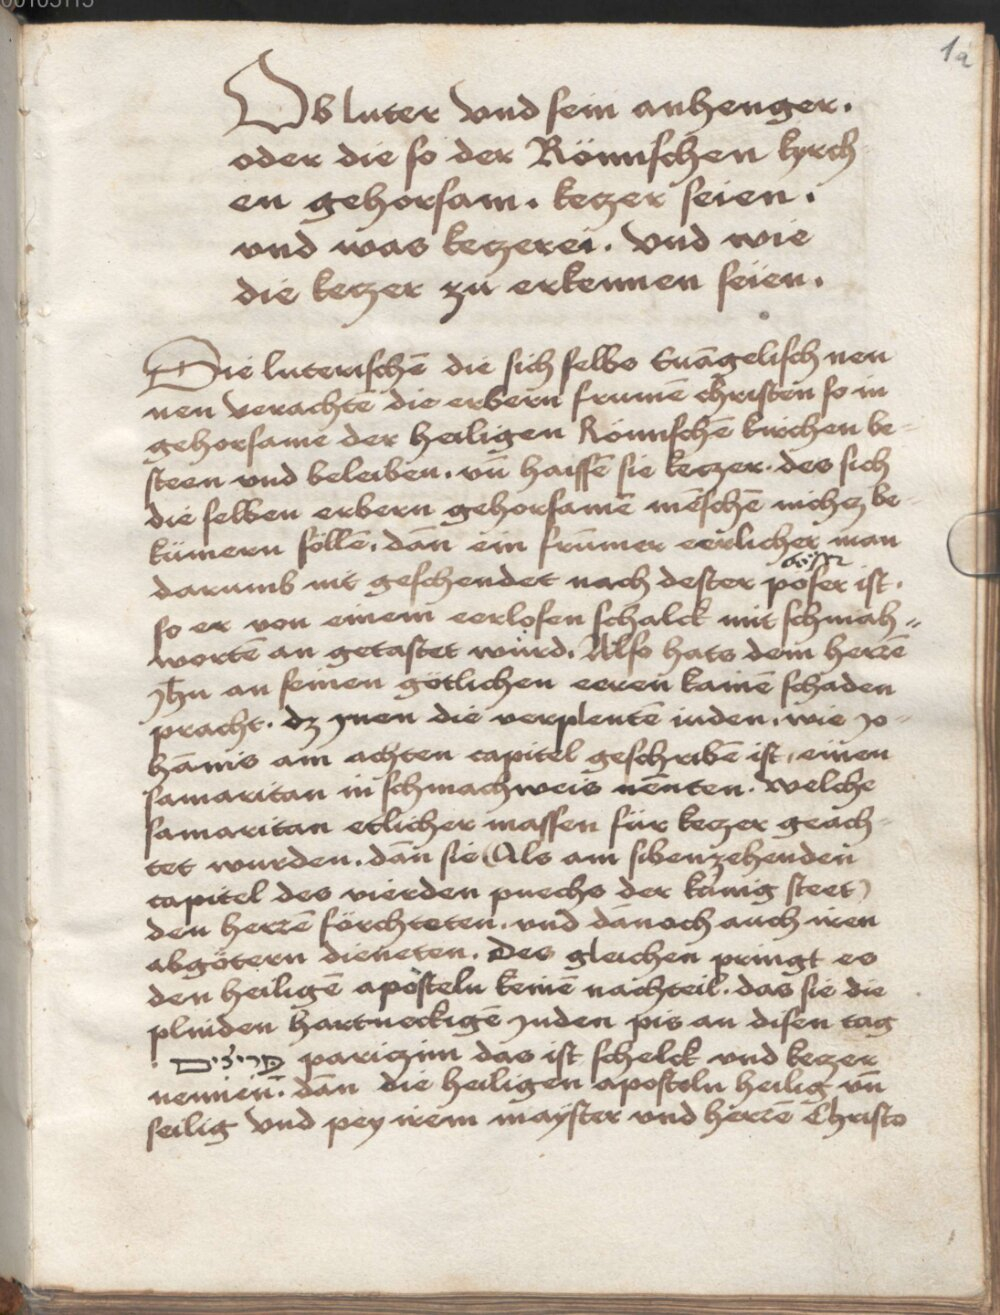 00103115
1a
Ob luter vnd sein anhenger.
oder die so der Römischen kyrch
en gehorsam. ketzer seien.
vnd was ketzerei. vnd wie
die ketzer zu erkennen seien.
Die luterischē die sich selbs Euāgelisch nen
nen verachtē die erbern frumē christen so in
gehorsame der heiligen Römischē kirchen be-
steen vnd beleiben. vn̄ haissē sie ketzer. des sich
die selben erbern gehorsamē mēschē nichtz be-
kümern söllē. dan ein frumer eerlicher man
darumb nit geschendet nach dester poser ist.
so er von einem eerlosen schalck mit schmach-
wortē an getastet würd. Also hats dem herrē
Jhū an seinen götlichen eeren kainē schaden
pracht. dz ynen die verplentē iuden. wie Jo-
hānis am achten capitel geschribē ist, einen
samaritan in schmachweis nēnten. Welche
samaritan etlicher massen für ketzer geach-
tet wurden. dan sie (Als am sibenzehenden
capitel des vierden puechs der künig steet)
den herrē förchteten. vnd dānoch auch iren
abgötern dieneten. Des gleichen pringt es
den heiligē aposteln keinē nachteil. das sie die
plinden hartneckigē Juden pis an disen tag
פריצים parizim das ist schelck vnd ketzer
nennen. dan die heiligen aposteln heilig vn̄
seilig vnd pey irem mayster vnd herrē Christo